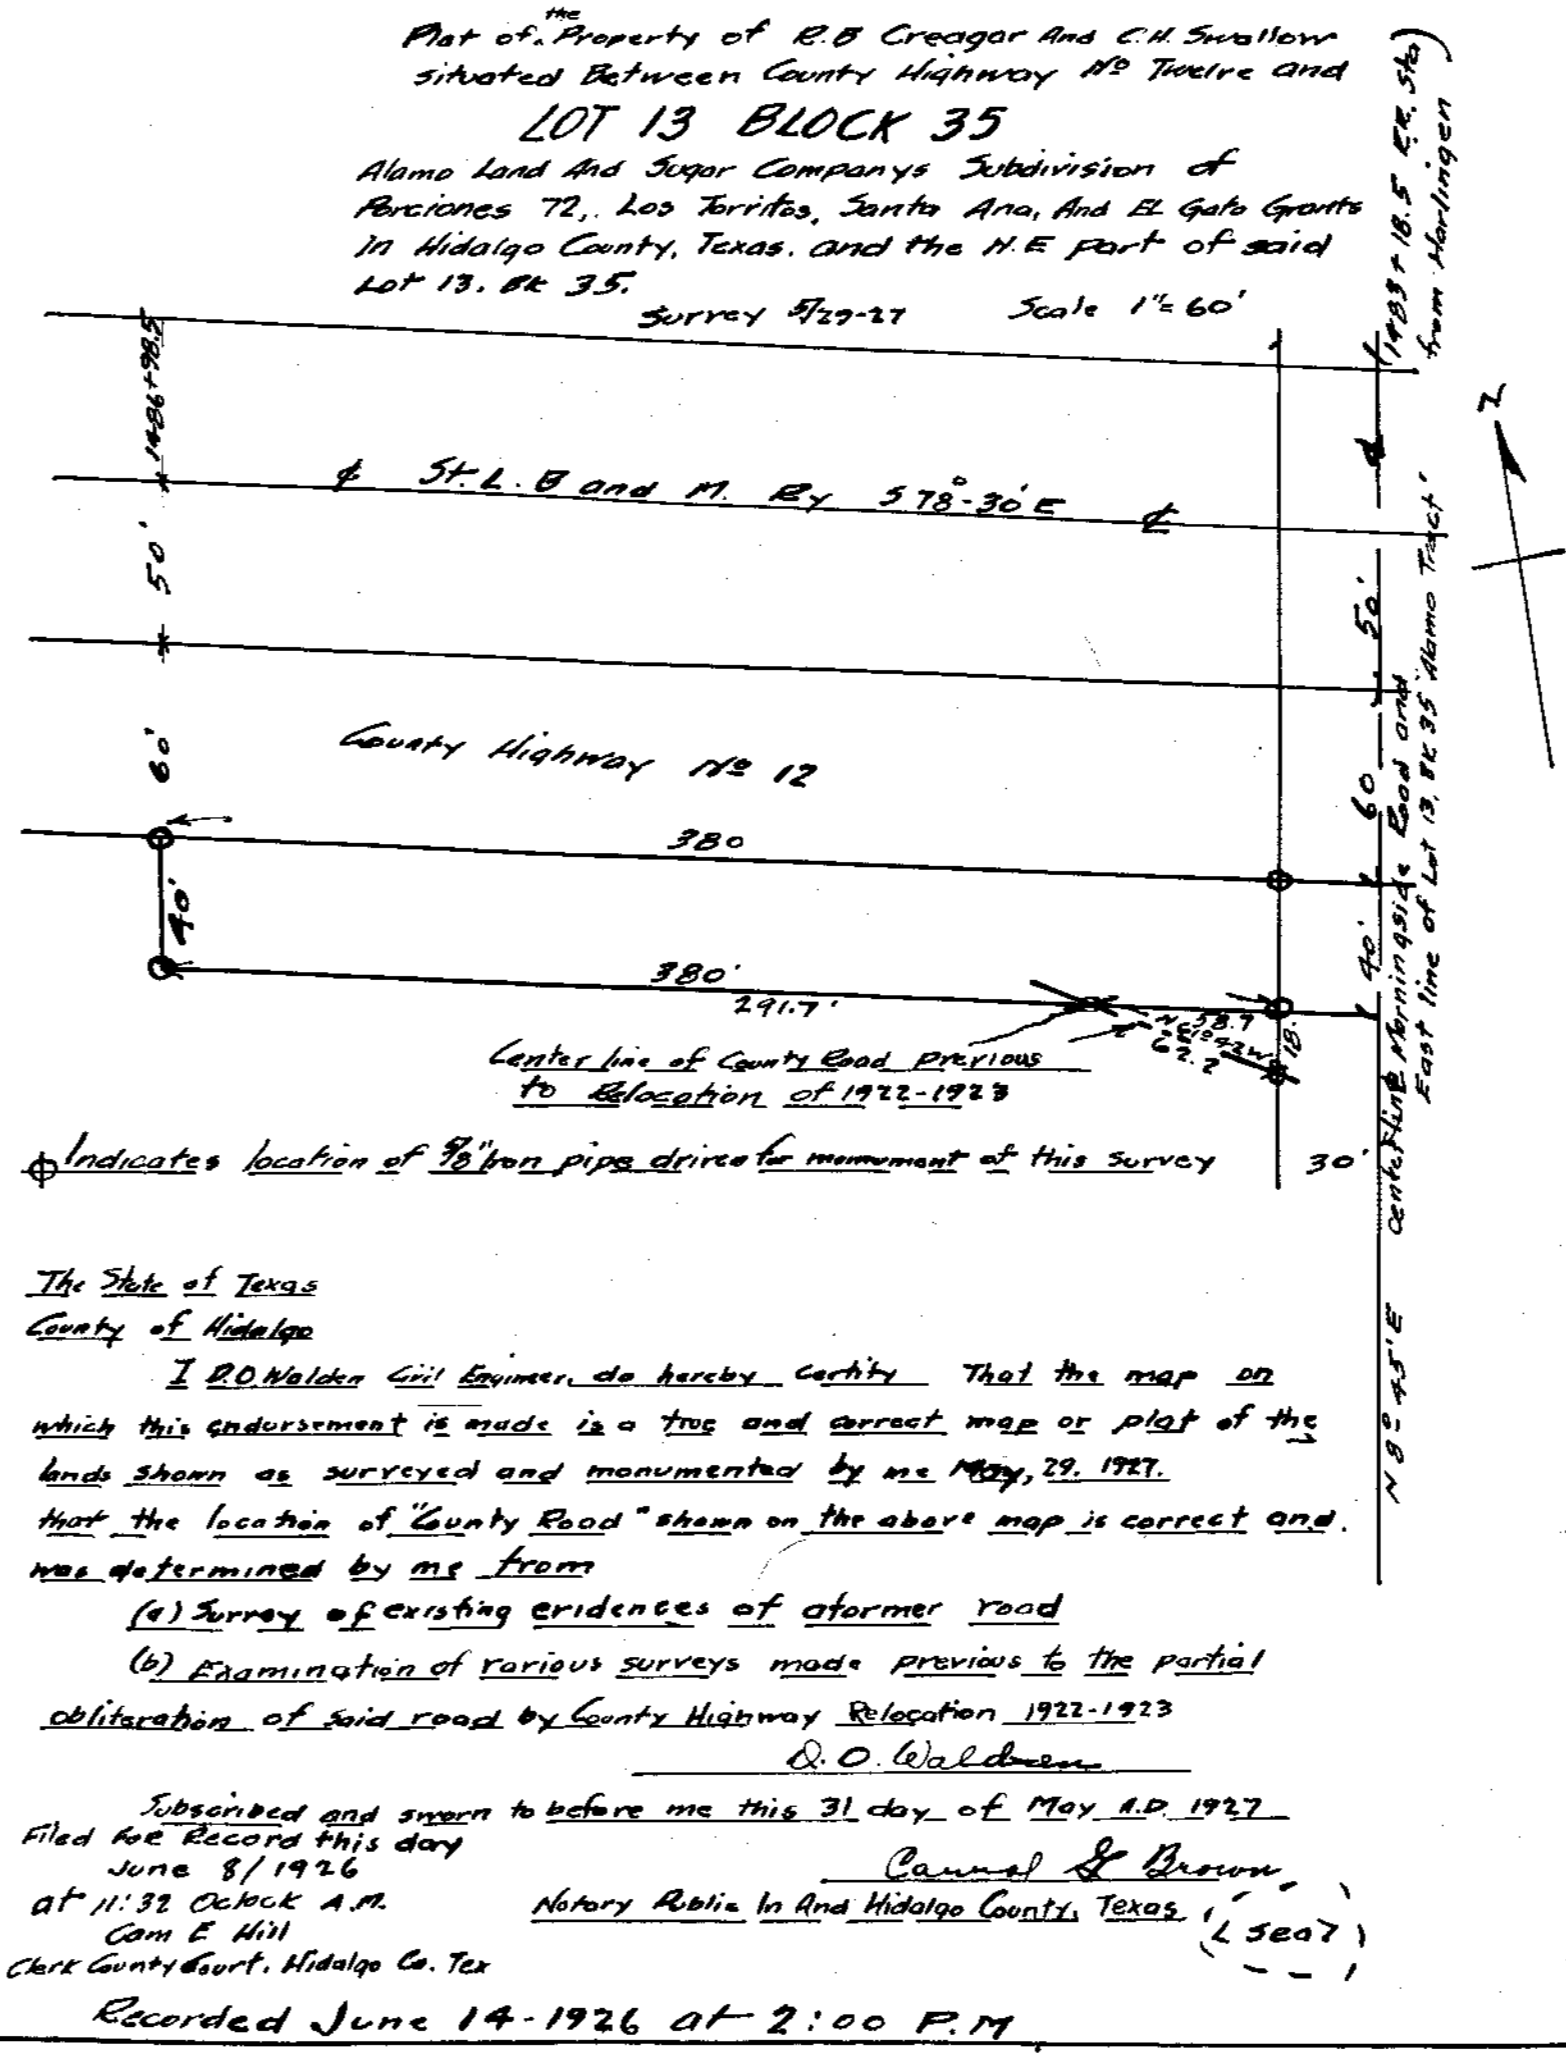 Plat of the Property of R.B Creagar And C.H. Swallow
situated Between County Highway No Twelve and
LOT 13 BLOCK 35
Alamo Land And Sugar Companys Subdivision of
Porciones 72, Los Torritos, Santa Ana, And EL Gato Grants
In Hidalgo County, Texas. and the N.E part of said
Lot 13. Bk 35.
Survey 5/29-27 Scale 1"=60'
1486+98.5
1483+18.5 R.R. Sta)
from Harlingen)
N
₵ St. L. B and M. Ry S 78°-30' E ₵
50'
50'
County Highway No 12
60'
60
380
40'
40'
380'
291.7'
58.7
62.2
18.
Center line of County Road previous
to Relocation of 1922-1923
Indicates location of 5/8" Iron pipe driven for monument at this survey
30'
Center line Morningside Road and
East line of Lot 13, Bk 35 "Alamo Tract"
N 8°-45' E
The State of Texas
County of Hidalgo
I D.O. Walden Civil Engineer, do hereby certify That the map on
which this endursement is made is a true and correct map or plat of the
lands shown as surveyed and monumented by me May, 29. 1927.
that the location of "County Road" shown on the above map is correct and.
was determined by me from
(a) Survey of existing evidences of a former road
(b) Examination of various surveys made previous to the partial
obliteration of said road by County Highway Relocation 1922-1923
D. O. Waldren
Subscribed and sworn to before me this 31 day of May A.D. 1927
Filed For Record this day
June 8/1926
at 11:32 Oclock A.M.
Cam E Hill
Clerk County Court, Hidalgo Co. Tex
Brown
Notary Public In And Hidalgo County, Texas
(Seal)
Recorded June 14-1926 at 2:00 P.M